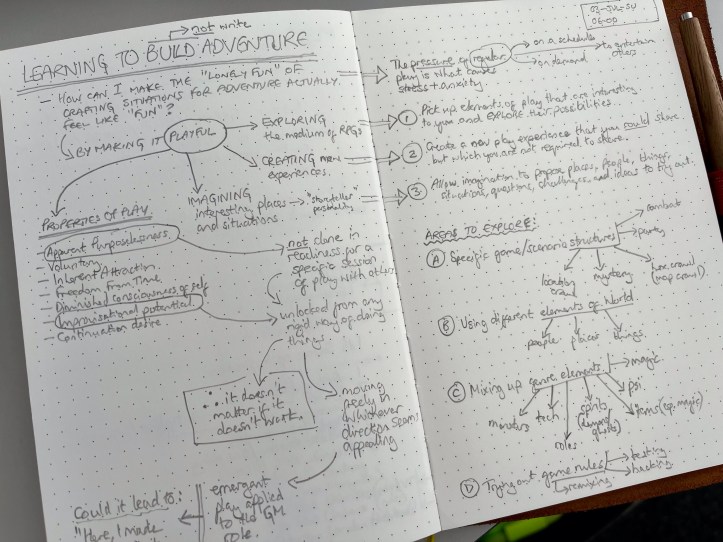 not write
LEARNING TO BUILD ADVENTURE
- HOW CAN I MAKE THE "LONELY FUN" OF
CRAFTING SITUATIONS FOR ADVENTURE ACTUALLY
FEEL LIKE "FUN"?
BY MAKING IT PLAYFUL
EXPLORING
the medium of RPGs
CREATING new
experiences.
IMAGINING
interesting places
and situations.
"storyteller"
personality
PROPERTIES OF PLAY
- Apparent Purposelessness
- Voluntary
- Inherent Attraction
- Freedom from Time
- Diminished consciousness of self
- Improvisational potential
- Continuation desire
not done in
readiness for a
specific session
of play with others
unlocked from any
rigid way of doing
things
∴ it doesn't
matter if it
doesn't work.
moving
freely in
whichever
direction seems
appealing
emergent
play applied
to the GM
role.
Could it lead to:
"Here, I made
03-JUL-24
06:00
The pressure of regular
play is what causes
stress + anxiety
on a schedule
on demand
to entertain
others
① Pick up elements of play that are interesting
to you and EXPLORE their possibilities.
② Create a new play experience that you could share
but which you are not required to share.
③ Allow imagination to propose places, people, things,
situations, questions, challenges, and ideas to try out.
AREAS TO EXPLORE:
Ⓐ Specific game/scenario structures
combat
party
location
crawl
mystery
hex crawl
(map crawl)
Ⓑ Using different elements of World
people
places
things
Ⓒ Mixing up genre elements
magic
psi
items (esp. magic)
spirits
(demons/
ghosts)
roles
tech
monsters
Ⓓ Trying out game rules
testing
hacking
remixing